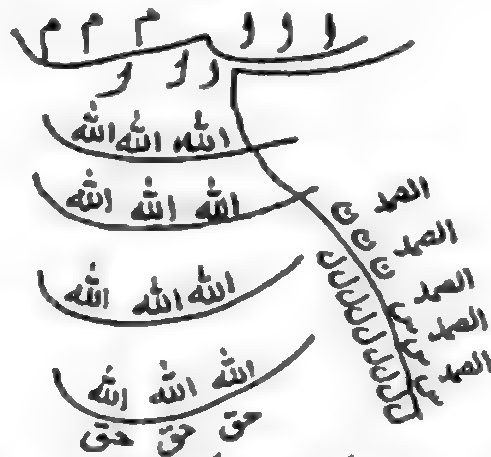 ا ا ا م م م
الله الله الله
الله الله الله
الله الله الله
الله الله الله
حق حق حق
الصمد
الصمد
الصمد
الصمد
الصمد
ن ن ن
س س س
ل ل ل ل ل ل ل ل